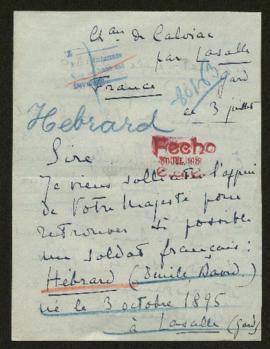 Chau de Calviac
par Lasalle
Gard
France
ce 3 juillet
Hebrard
Fecho
Sire,
Je viens solliciter l'appui
de Votre Majesté pour
retrouver si possible
un soldat français :
Hébrard (Emile, David)
né le 3 octobre 1895
à Lasalle (Gard)